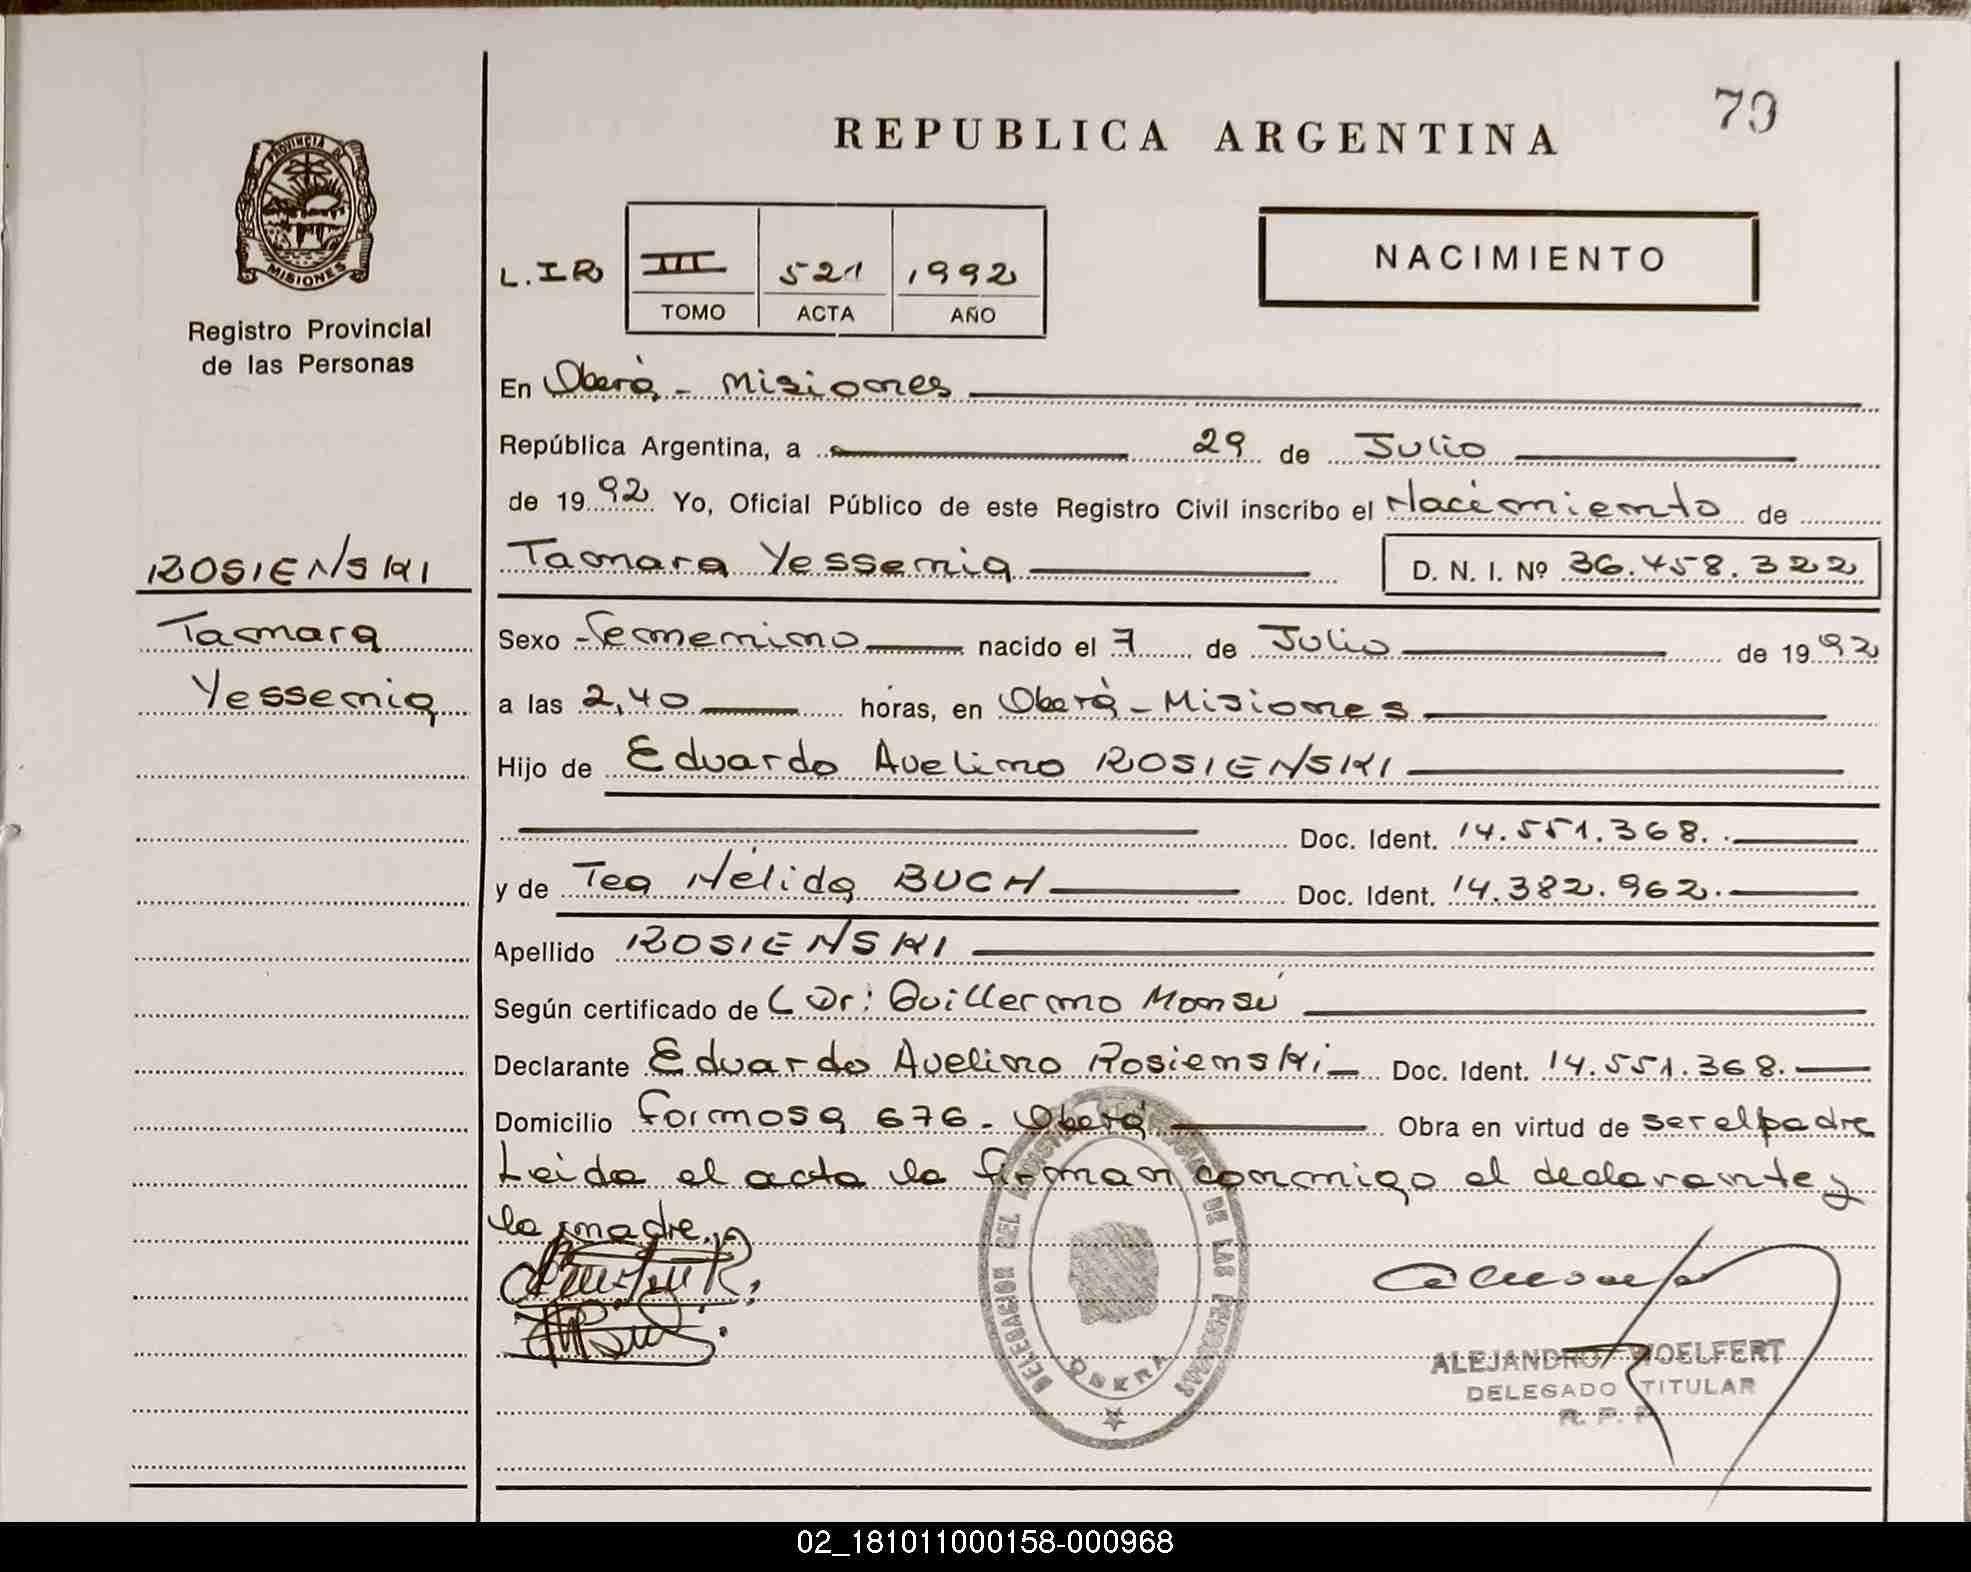 79
REPUBLICA ARGENTINA
PROVINCIA D
MISIONES
Registro Provincial
de las Personas
L.IR III 521 1992
TOMO ACTA AÑO
NACIMIENTO
En Oberá - Misiones
República Argentina, a 29 de Julio
de 1992 Yo, Oficial Público de este Registro Civil inscribo el Nacimiento de
Tamara Yessenia D. N. I. Nº 36.458.322
ROSIENSKI
Tamara
Yessenia
Sexo femenino nacido el 7 de Julio de 1992
a las 2,40 horas, en Oberá - Misiones
Hijo de Eduardo Avelino ROSIENSKI
Doc. Ident. 14.551.368.
y de Tea Nélida BUCH Doc. Ident. 14.382.962.
Apellido ROSIENSKI
Según certificado de Dr: Guillermo Monsú
Declarante Eduardo Avelino Rosienski Doc. Ident. 14.551.368.
Domicilio Formosa 676 - Oberá Obra en virtud de ser el padre
Leida el acta la firman conmigo el declarante y
la madre.
DELEGACION DEL REGISTRO DE LAS PERSONAS
OBERA
ALEJANDRO WOELFERT
DELEGADO TITULAR
R. P. P.
02_181011000158-000968